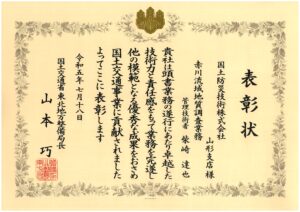 表彰状
国土防災技術株式会社
山形支店様
赤川流域地質調査業務
管理技術者 柴崎達也
貴社は頭書業務の遂行にあたり卓越した
技術力と責任感をもって業務を完遂し
他の模範となる優秀な成果をおさめ
国土交通事業に貢献されました
よってここに表彰します
令和五年七月十八日
国土交通省東北地方整備局長
山本巧